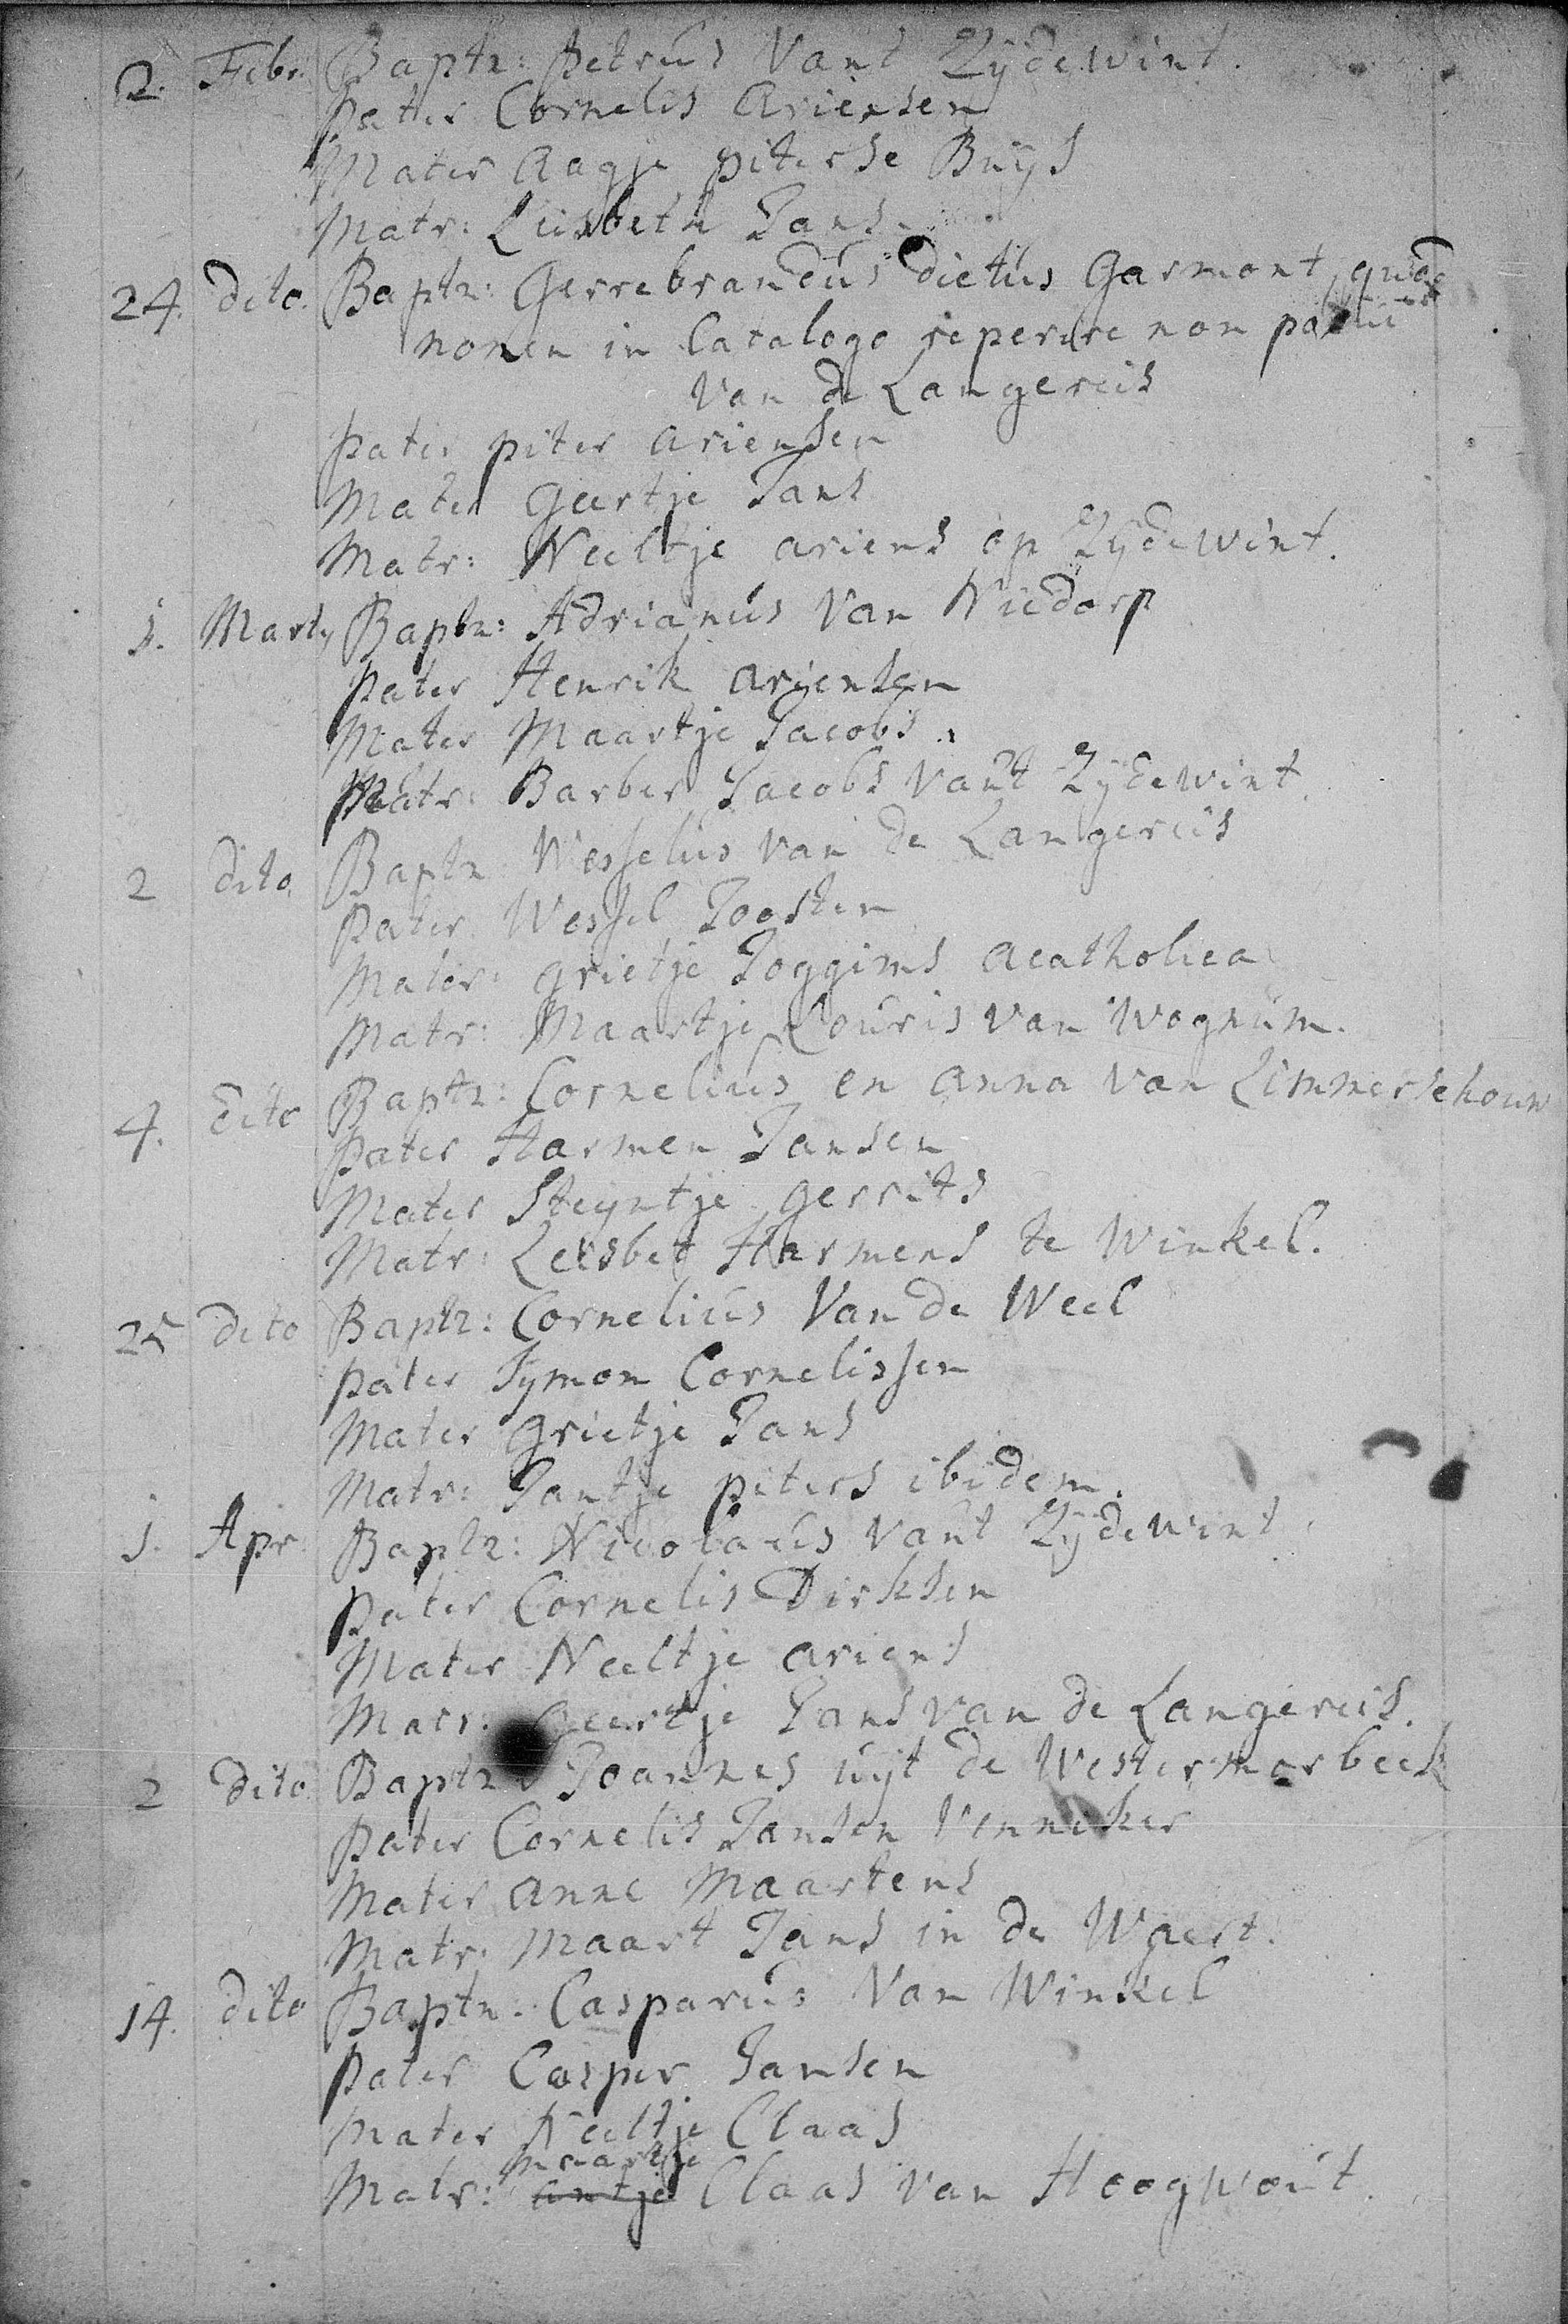 2. Febr. Baptz: Petrus Vant Zijdewint.
Pater Cornelis Ariensen
Mater Aagje piterse Buijs
Matr: Liisbeth Jans.
24. dito. Baptz: Gerrebrandus dictus Garmont, quod
nomen in Catalogo reperire non potui
Van de Langereis
Pater piter ariensen
Mater Geertje Jans
Matr: Neeltje ariens op Zijdewint.
1. Marty Baptz: Adrianus Van Niedorp
Pater Henrik ariensen
Mater Maartje Jacobs.
Matr: Barber Jacobs Vant Zijdewint.
2 dito Baptz Wesselus Van de Langereis
Pater Wessel Joosten
Mater: grietje Joggims acatholica
Matr: Maartje Louris van Wognum.
4. dito Baptz: Cornelius en anna van Zimmerschouw
Pater Harmen Jansen
Mater Steyntje gerrits
Matr: Leisbet Harmens te Winkel.
25 dito Baptz: Cornelius Van de Weel
Pater Tymon Cornelissen
Mater Grietje Jans
Matr: Jantje piters ibidem.
1. Apr. Baptz: Nicolaus Vant Zijdewint.
Pater Cornelis Dirksen
Mater Neeltje ariens
Matr: Geertje Jans van de Langereis.
2 dito Baptz Joannes uijt de Westermorbeek
Pater Cornelis Jansen Venneker
Mater anne Maartens
Matr: Maart Jans in de Waert.
14. dito Baptz: Casparus Van Winkel
Pater Casper Jansen
Mater Neeltje Claas
maartje
Matr: antje Claas van Hoogwout.